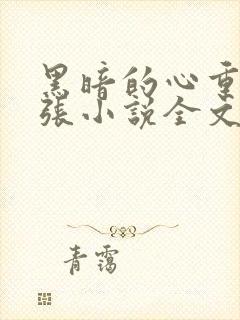 黑暗的心重
张小说全文
青霭